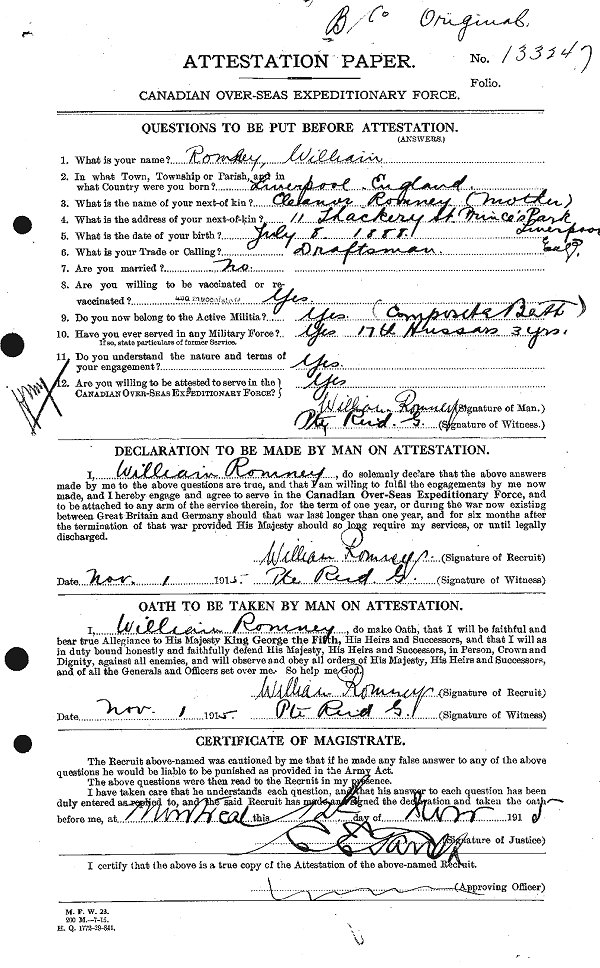 B/Co Original.
ATTESTATION PAPER.
No. 133247
Folio.
CANADIAN OVER-SEAS EXPEDITIONARY FORCE.
QUESTIONS TO BE PUT BEFORE ATTESTATION.
(ANSWERS.)
1. What is your name? Romney, William
2. In what Town, Township or Parish, and in
what Country were you born? Liverpool England
3. What is the name of your next-of kin? Eleanor Romney (Mother)
4. What is the address of your next-of-kin? 11 Thackery St. Princes Park
Liverpool
5. What is the date of your birth? July 8. 1888.
Eng.
6. What is your Trade or Calling? Draftsman.
7. Are you married? no.
8. Are you willing to be vaccinated or re-
vaccinated? Yes.
9. Do you now belong to the Active Militia? Yes (Composite Batt)
10. Have you ever served in any Military Force? Yes 17th Hussars 3 yrs.
If so, state particulars of former Service.
11. Do you understand the nature and terms of
your engagement? Yes
12. Are you willing to be attested to serve in the
CANADIAN OVER-SEAS EXPEDITIONARY FORCE? Yes
William Romney (Signature of Man.)
Pte Reid. G. (Signature of Witness.)
DECLARATION TO BE MADE BY MAN ON ATTESTATION.
I, William Romney, do solemnly declare that the above answers
made by me to the above questions are true, and that I am willing to fulfil the engagements by me now
made, and I hereby engage and agree to serve in the Canadian Over-Seas Expeditionary Force, and
to be attached to any arm of the service therein, for the term of one year, or during the war now existing
between Great Britain and Germany should that war last longer than one year, and for six months after
the termination of that war provided His Majesty should so long require my services, or until legally
discharged.
William Romney (Signature of Recruit)
Date Nov. 1 1915. Pte Reid G. (Signature of Witness)
OATH TO BE TAKEN BY MAN ON ATTESTATION.
I, William Romney, do make Oath, that I will be faithful and
bear true Allegiance to His Majesty King George the Fifth, His Heirs and Successors, and that I will as
in duty bound honestly and faithfully defend His Majesty, His Heirs and Successors, in Person, Crown and
Dignity, against all enemies, and will observe and obey all orders of His Majesty, His Heirs and Successors,
and of all the Generals and Officers set over me. So help me God.
William Romney (Signature of Recruit)
Date Nov. 1 1915. Pte Reid G. (Signature of Witness)
CERTIFICATE OF MAGISTRATE.
The Recruit above-named was cautioned by me that if he made any false answer to any of the above
questions he would be liable to be punished as provided in the Army Act.
The above questions were then read to the Recruit in my presence.
I have taken care that he understands each question, and that his answer to each question has been
duly entered as replied to, and the said Recruit has made and signed the declaration and taken the oath
before me, at Montreal this 1st day of Nov 1915
(Signature of Justice)
I certify that the above is a true copy of the Attestation of the above-named Recruit.
(Approving Officer)
M. F. W. 23.
200 M.—7-15.
H. Q. 1772-39-841.